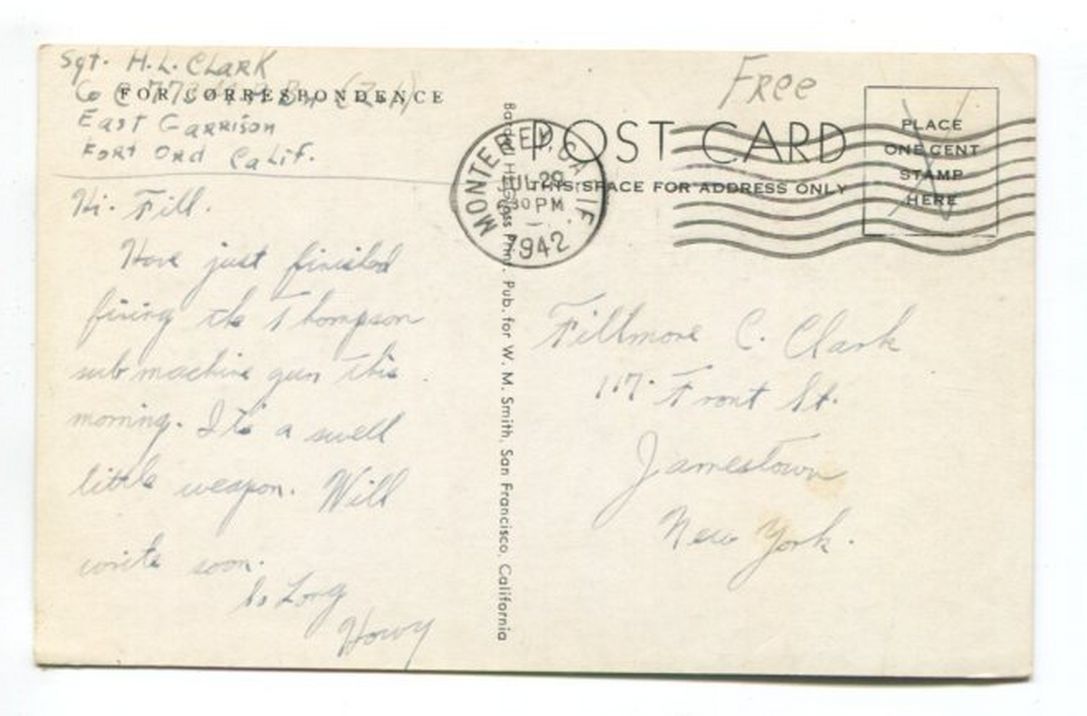 Sgt. H.L. Clark
Co C
FOR CORRESPONDENCE
East Garrison
Fort Ord Calif.
Hi. Fill.
Have just finished
firing the Thompson
sub machine gun this
morning. Its a swell
little weapon. Will
write soon.
So Long
Howy
Pub. for W. M. Smith, San Francisco, California
MONTEREY, CALIF.
JUL 29
30 PM
1942
Free
POST CARD
THIS SPACE FOR ADDRESS ONLY
PLACE
ONE CENT
STAMP
HERE
Fillmore C. Clark
117. Front St.
Jamestown
New York.